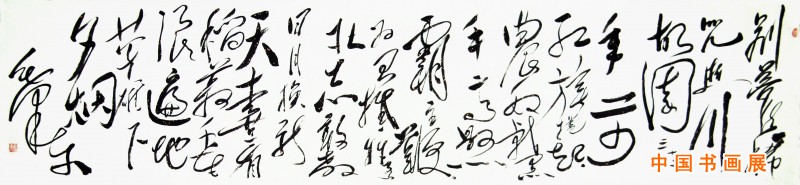 别梦依稀
咒逝川
故园三十
二年前
红旗卷起
农奴戟黑
手高悬
霸主鞭
为有牺牲
多壮志敢教
日月换新
天喜看
稻菽千重
浪遍地
英雄下
夕烟
毛泽东
中国书画展